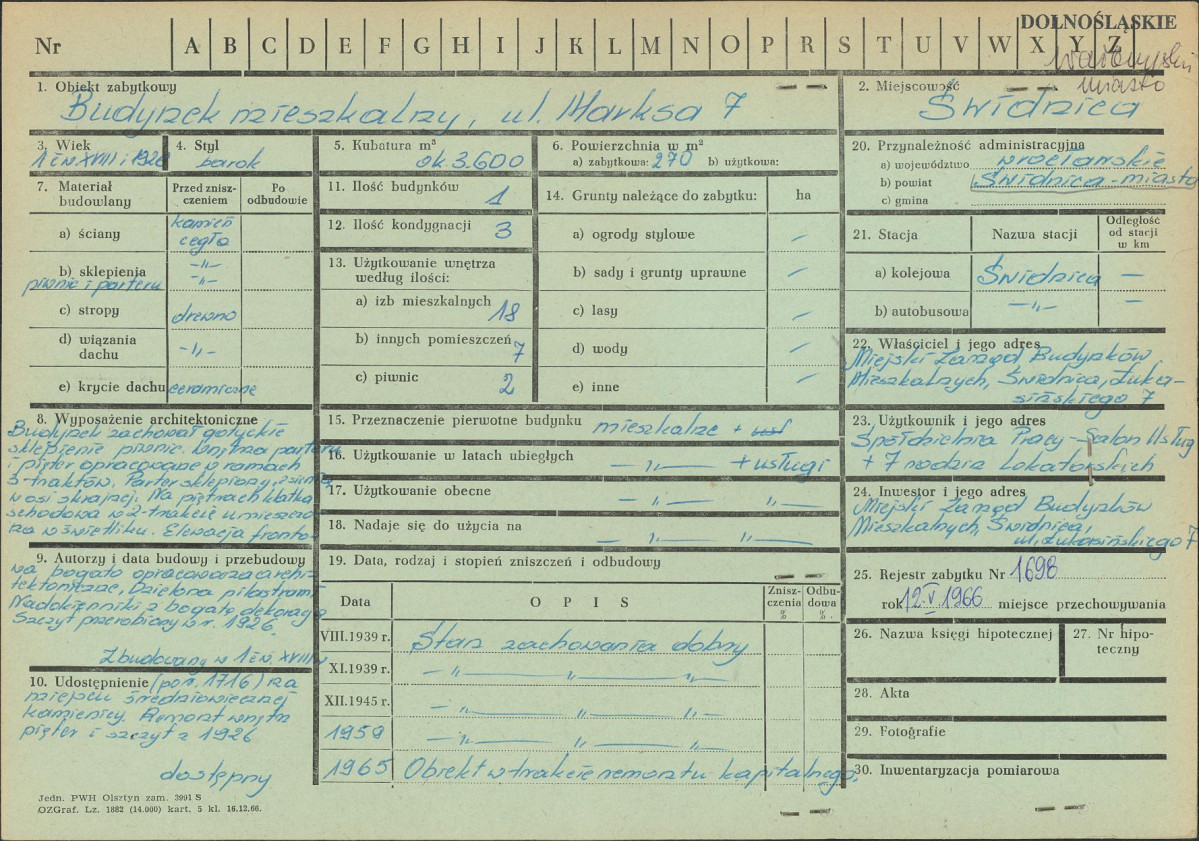 DOLNOŚLĄSKIE
Nr A B C D E F G H I J K L M N O P R S T U V W X Y Z
miasto
1. Obiekt zabytkowy
Budynek mieszkalny, ul. Marksa 7
2. Miejscowość
Świdnica
3. Wiek
1 ćw. XVIII i 1926
4. Styl
barok
5. Kubatura m³
ok 3.600
6. Powierzchnia w m²
a) zabytkowa: 270 b) użytkowa:
20. Przynależność administracyjna
a) województwo wrocławskie
b) powiat Świdnica-miasto
c) gmina
7. Materiał budowlany
Przed zniszczeniem
Po odbudowie
a) ściany kamień
cegła
b) sklepienia -"-
piwnic i parteru -"-
c) stropy drewno
d) wiązania dachu -"-
e) krycie dachu ceramiczne
11. Ilość budynków
1
12. Ilość kondygnacji 3
13. Użytkowanie wnętrza
według ilości:
a) izb mieszkalnych
18
b) innych pomieszczeń
7
c) piwnic
2
14. Grunty należące do zabytku: ha
a) ogrody stylowe –
b) sady i grunty uprawne –
c) lasy –
d) wody –
e) inne –
21. Stacja
Nazwa stacji
Odległość
od stacji
w km
a) kolejowa Świdnica —
b) autobusowa -"- –
22. Właściciel i jego adres
Miejski Zarząd Budynków
Mieszkalnych, Świdnica, Łuka-
sińskiego 7
8. Wyposażenie architektoniczne
Budynek zachował gotyckie
sklepienie piwnic. Wnętrza parteru
i pięter opracowane w ramach
3-traktów. Parter sklepiony, sienią
w osi skrajnej. Na piętrach klatka
schodowa w 2-trakcie umieszczo-
na w świetliku. Elewacja fronto-
9. Autorzy i data budowy i przebudowy
wa bogato opracowana archi-
tektonicznie, Dzielona pilastrami
Nadokienniki z bogatą dekoracją
Szczyt przerobiony w r. 1926.
Zbudowany w 1 ćw. XVIII w
10. Udostępnienie (po r. 1716) na
miejscu średniowiecznej
kamienicy. Remont wnętrz
pięter i szczyt z 1926
dostępny
15. Przeznaczenie pierwotne budynku mieszkalne +
16. Użytkowanie w latach ubiegłych -"- + usługi
17. Użytkowanie obecne -"- "-
18. Nadaje się do użycia na -"- "- "-
19. Data, rodzaj i stopień zniszczeń i odbudowy
Data
O P I S
Znisz-
czenia
%
Odbu-
dowa
%
VIII.1939 r. Stan zachowania dobry
XI.1939 r. -"- " "-
XII.1945 r. -"- " "-
1959 -"- " "-
1965 Obiekt w trakcie remontu kapitalnego,
23. Użytkownik i jego adres
Spółdzielnia Pracy – Salon Usług
+ 7 rodzin lokatorskich
24. Inwestor i jego adres
Miejski Zarząd Budynków
Mieszkalnych, Świdnica,
ul. Łukasińskiego 7
25. Rejestr zabytku Nr 1698
rok 12.V 1966 miejsce przechowywania
26. Nazwa księgi hipotecznej
27. Nr hipo-
teczny
28. Akta
29. Fotografie
30. Inwentaryzacja pomiarowa
Jedn. PWH Olsztyn zam. 3991 S
OZGraf. Lz. 1882 (14.000) kart. 5 kl. 16.12.66.